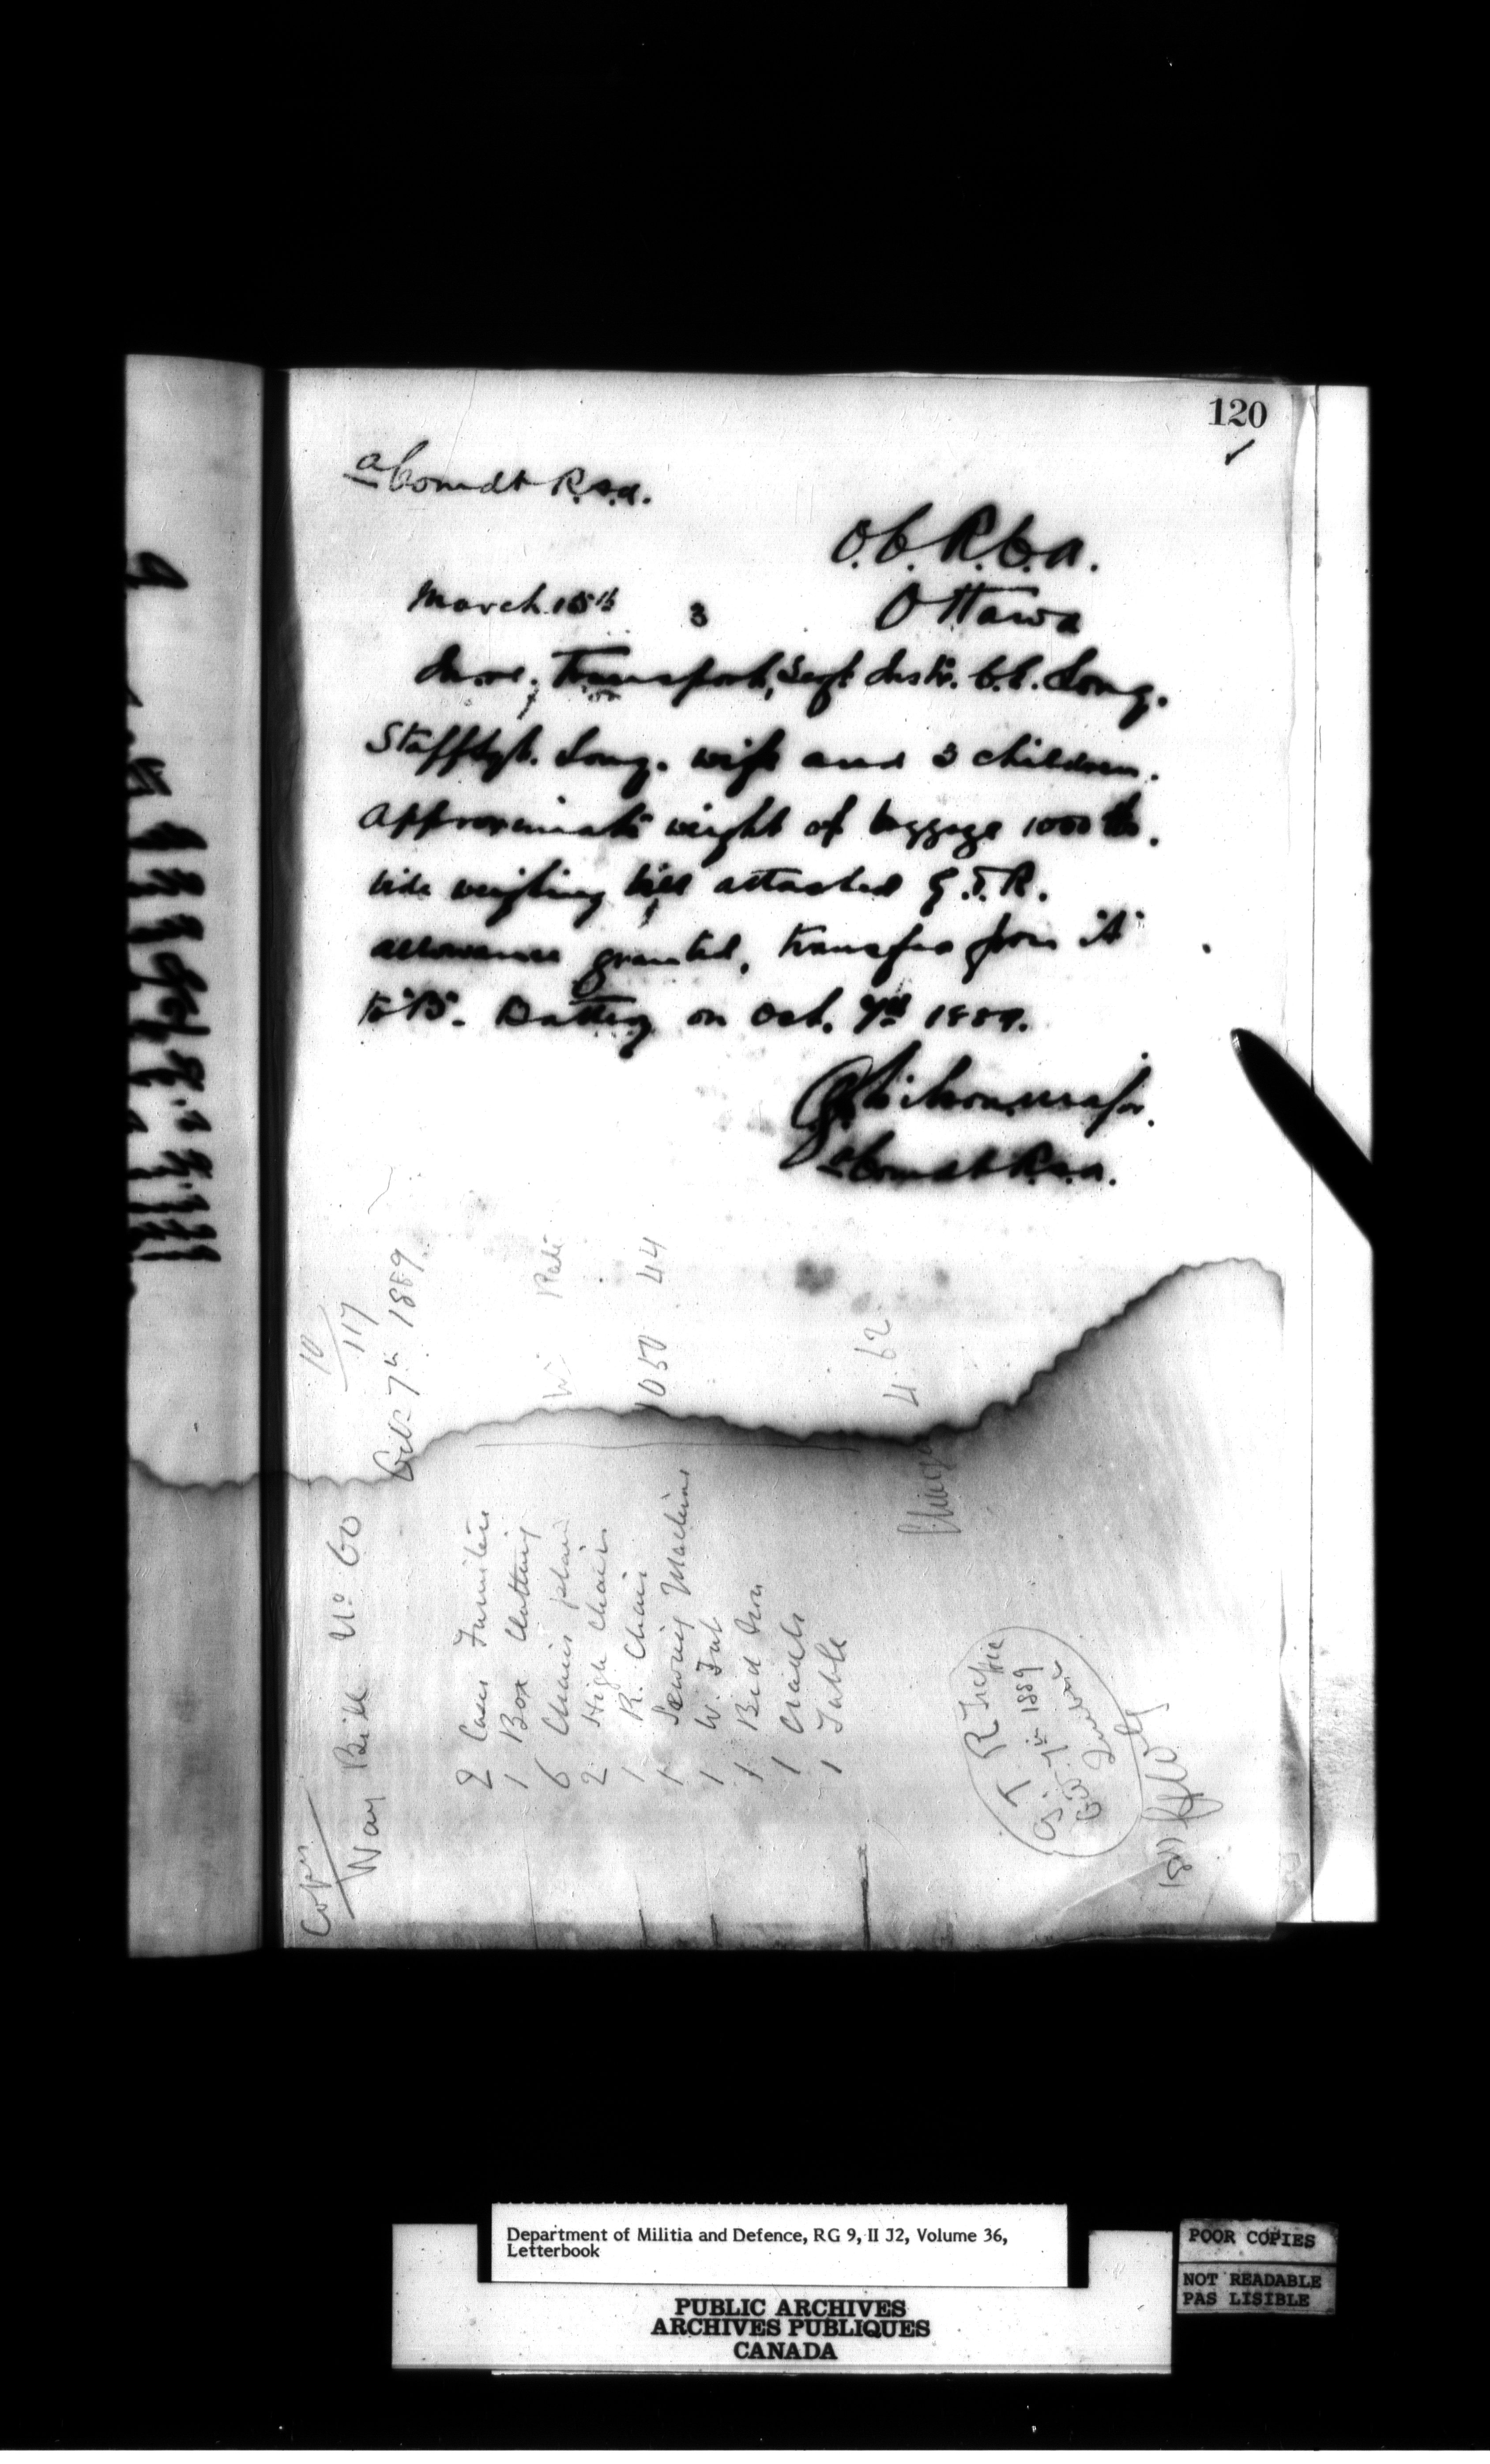 120
a Comdt R.S.A.
O.C. R.C.A.
March 15th 3 Ottawa
Transport, Sergt. Instr. C.C. Long.
Staff Sgt. Long. wife and 3 children.
Approximate weight of baggage 1000 lbs.
vide weighing bill attached G.T.R.
allowance granted, transfer from "A"
to "B". Battery on Oct. 7th 1889.
Major.
a Comdt R.S.A.
Copy
10
117
Way Bill No 60 Oct 7th 1889.
Wt Rate
2 Cases Furniture
1 Box Clothing
6 Chairs plain
2 High Chairs
1 R. Chair 1050 44
1 Sewing Machine
1 W. Tub
1 Bed Iron
1 Cradle
1 Table
4.62
G. T. R
Oct 7th 1889
Department of Militia and Defence, RG 9, II J2, Volume 36,
Letterbook
PUBLIC ARCHIVES
ARCHIVES PUBLIQUES
CANADA
POOR COPIES
NOT READABLE
PAS LISIBLE